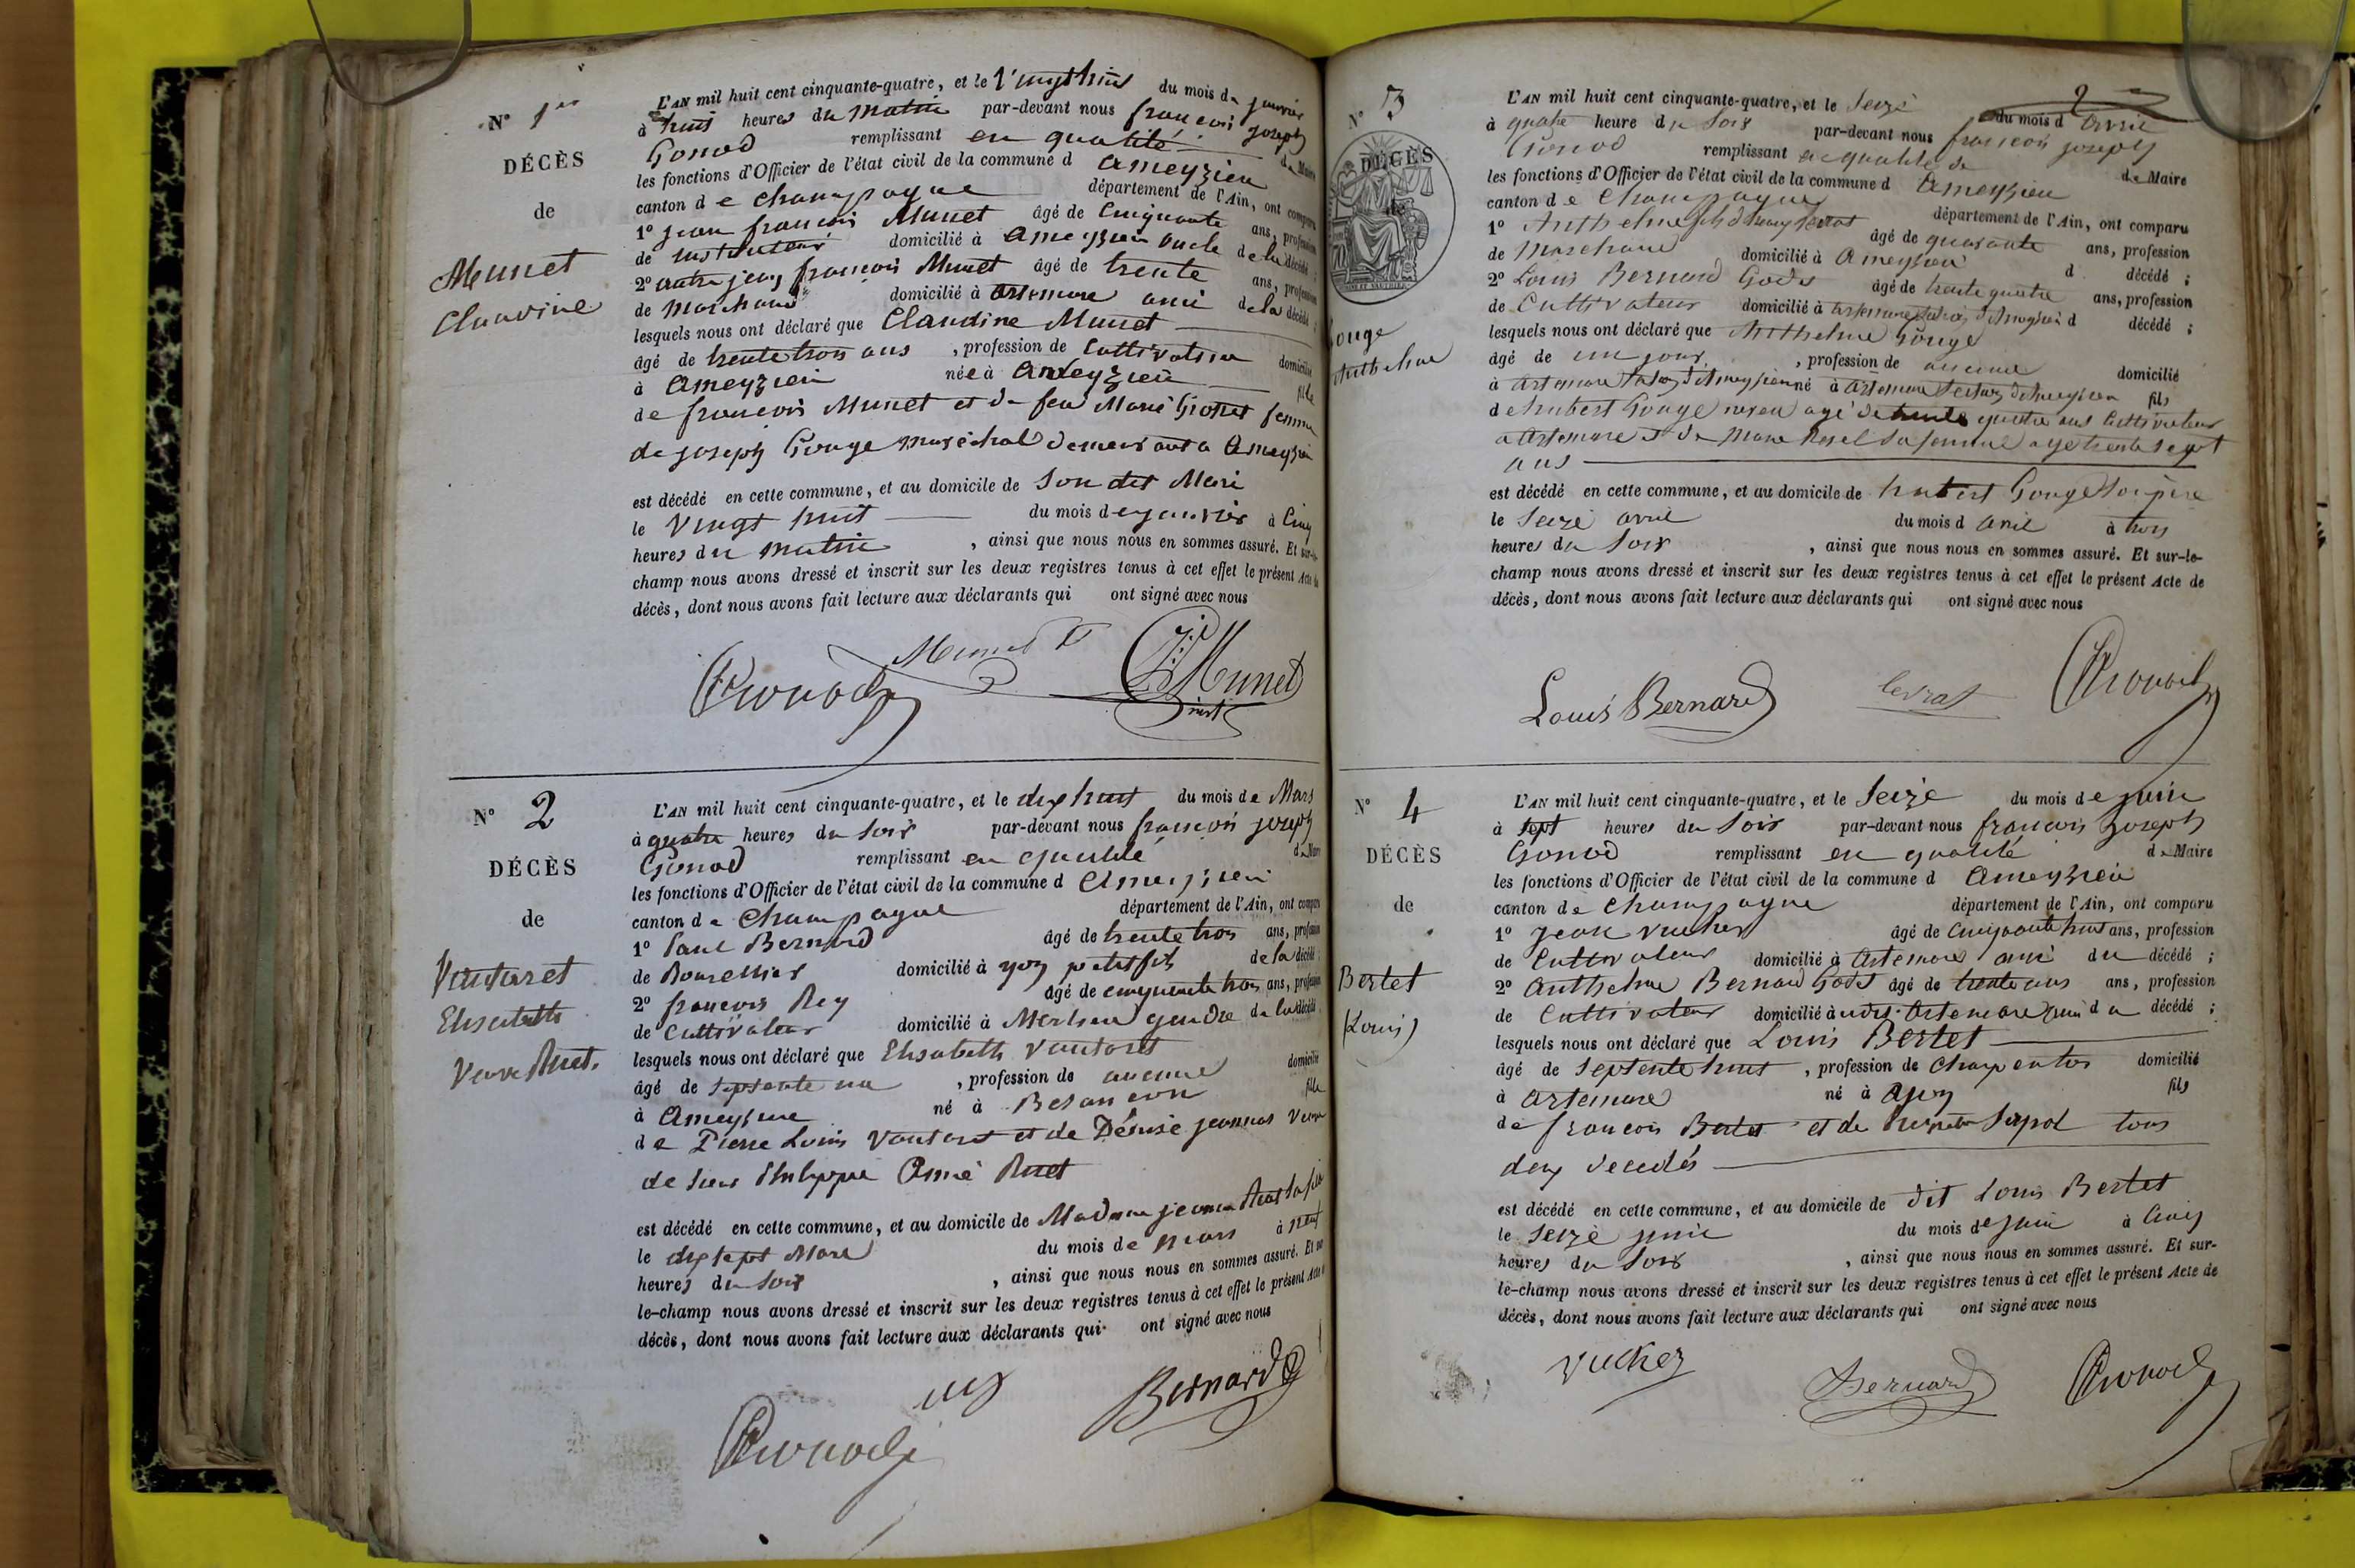 N° 1er
DÉCÈS
de
Munet
Claudine
L'AN mil huit cent cinquante-quatre, et le Vingt huit du mois de janvier
à huit heures du matin par-devant nous françois joseph
Gonod remplissant en qualité de Maire
les fonctions d'Officier de l'état civil de la commune d Ameyzieu
canton de Champagne département de l'Ain, ont comparu
1° jean françois Munet âgé de Cinquante ans, profession
de instituteur domicilié à Ameyzieu oncle de la décédé ;
2° autre jean françois Munet âgé de trente ans, profession
de Marchand domicilié à Artemare ami de la décédé ;
lesquels nous ont déclaré que Claudine Munet
âgé de trente trois ans , profession de Cultivatrice domicilié
à Ameyzieu née à Ameyzieu fille
de françois Munet et de feu Marie Grosset femme
de joseph Gouge maréchal demeurant a Ameyzieu
est décédé en cette commune, et au domicile de Son dit Mari
le Vingt huit du mois de janvier à Cinq
heures du matin , ainsi que nous nous en sommes assuré. Et sur-le-
champ nous avons dressé et inscrit sur les deux registres tenus à cet effet le présent Acte de
décès, dont nous avons fait lecture aux déclarants qui ont signé avec nous
Gonod Munet Munet
N° 2
DÉCÈS
de
Vautaret
Elisabeth
Veuve Ruet.
L'AN mil huit cent cinquante-quatre, et le dix huit du mois de Mars
à quatre heures du Soir par-devant nous françois joseph
Gonod remplissant en qualité de Maire
les fonctions d'Officier de l'état civil de la commune d Ameyzieu
canton de Champagne département de l'Ain, ont comparu
1° Paul Bernard âgé de trente trois ans, profession
de Bourellier domicilié à yon petit fils de la décédé ;
2° françois Rey âgé de cinquante trois ans, profession
de Cultivateur domicilié à gendre de la décédé ;
lesquels nous ont déclaré que Elisabeth Vautaret
âgé de Septente un , profession de aucune domicilié
à Ameyzieu né à Besançon fille
de Pierre Louis Vautaret et de Dénise jeannot Veuve
de Sieur Philippe Aimé Ruet
est décédé en cette commune, et au domicile de Madame Ruet sa fille
le dix sept Mars du mois de Mars à neuf
heures du Soir , ainsi que nous nous en sommes assuré. Et sur-
le-champ nous avons dressé et inscrit sur les deux registres tenus à cet effet le présent Acte de
décès, dont nous avons fait lecture aux déclarants qui ont signé avec nous
Gonod Bernard
2
N° 3
DÉCÈS
de
Gouge
Anthelme
L'AN mil huit cent cinquante-quatre, et le Seize du mois d avril
à quatre heure du Soir par-devant nous françois joseph
Gonod remplissant en qualité de de Maire
les fonctions d'Officier de l'état civil de la commune d Ameyzieu
canton de Champagne département de l'Ain, ont comparu
1° Anthelme Levrat âgé de quarante ans, profession
de Marchand domicilié à Ameyzieu d décédé ;
2° Louis Bernard Godet âgé de trente quatre ans, profession
de Cultivateur domicilié à Artemare d'Ameyzieu d décédé ;
lesquels nous ont déclaré que Anthelme Gouge
âgé de un jour , profession de aucune domicilié
à Artemare d'Ameyzieu né à Artemare d'Ameyzieu fils
d hubert Gouge agé de trente quatre ans Cultivateur
a Artemare et de Marie sa femme agé trente sept
ans
est décédé en cette commune, et au domicile de hubert Gouge son père
le Seize avril du mois d avril à trois
heures du Soir , ainsi que nous nous en sommes assuré. Et sur-le-
champ nous avons dressé et inscrit sur les deux registres tenus à cet effet le présent Acte de
décès, dont nous avons fait lecture aux déclarants qui ont signé avec nous
Louis Bernard levrat Gonod
N° 4
DÉCÈS
de
Bertet
(Louis)
L'AN mil huit cent cinquante-quatre, et le Seize du mois de juin
à sept heures du Soir par-devant nous françois joseph
Gonod remplissant en qualité de Maire
les fonctions d'Officier de l'état civil de la commune d Ameyzieu
canton de Champagne département de l'Ain, ont comparu
1° jean vucher âgé de cinquante huit ans, profession
de Cultivateur domicilié à Artemare ami du décédé ;
2° Anthelme Bernard Godet âgé de trente ans ans, profession
de Cultivateur domicilié à Artemare ami du décédé ;
lesquels nous ont déclaré que Louis Bertet
âgé de Septente huit , profession de Charpentier domicilié
à Artemare né à fils
de françois Bertet et de Serpol tous
deux décédés
est décédé en cette commune, et au domicile de dit Louis Bertet
le Seize juin du mois de juin à Cinq
heures du Soir , ainsi que nous nous en sommes assuré. Et sur-
le-champ nous avons dressé et inscrit sur les deux registres tenus à cet effet le présent Acte de
décès, dont nous avons fait lecture aux déclarants qui ont signé avec nous
vucher Bernard Gonod